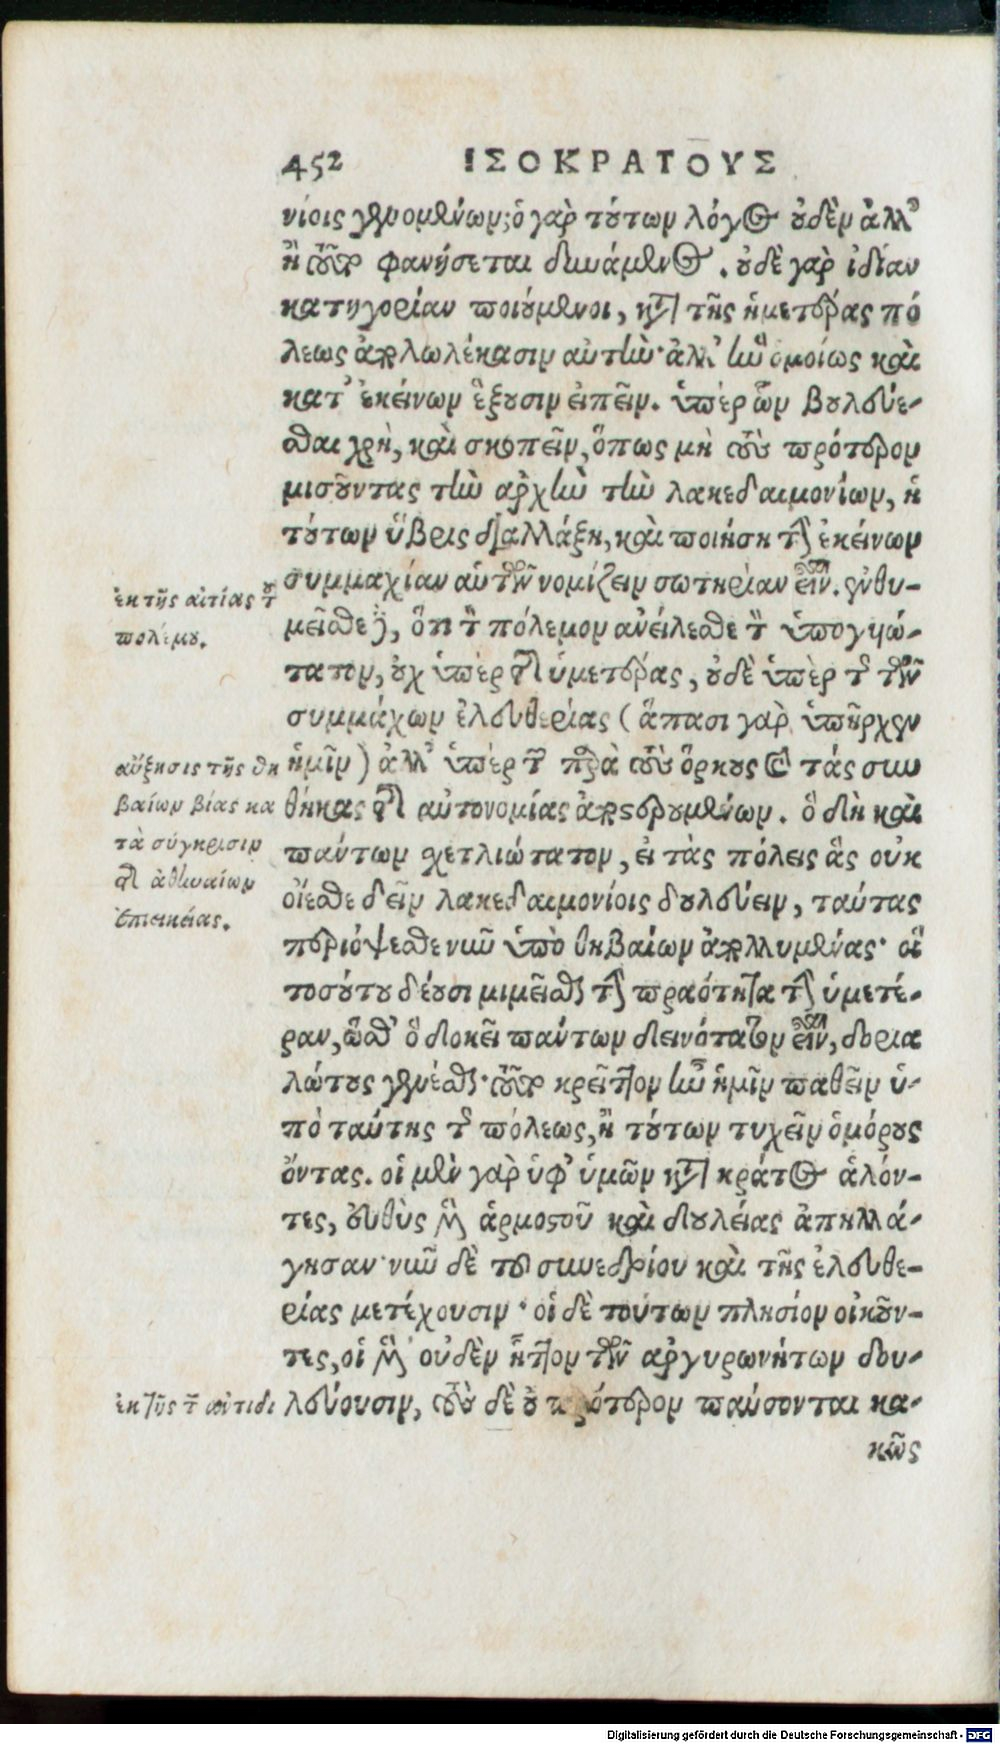 452 ΙΣΟΚΡΑΤΟΥΣ
νίοις γενομένων; ὁ γὰρ τούτων λόγος οὐδὲν ἀλλ'
ἢ τοῦτο φανήσεται δυνάμενος. οὐδὲ γὰρ ἰδίαν
κατηγορίαν ποιούμενοι, κατὰ τῆς ἡμετέρας πό
λεως ἀπολωλέκασιν αὐτὴν· ἀλλ' ἣν ὁμοίως καὶ
κατ' ἐκείνων ἕξουσιν εἰπεῖν. ὑπὲρ ὧν βουλεύε-
σθαι χρὴ, καὶ σκοπεῖν, ὅπως μὴ τοὺς πρότερον
μισοῦντας τὴν ἀρχὴν τὴν λακεδαιμονίων, ἡ
τούτων ὕβρις διαλλάξῃ, καὶ ποιήσῃ τὴν ἐκείνων
συμμαχίαν αὑτῶν νομίζειν σωτηρίαν εἶναι. ἐνθυ-
ἐκ τῆς αἰτίας τοῦ
πολέμου.
μεῖσθε δ', ὅτι τὸν πόλεμον ἀνείλεσθε τὸν ὑπογυιώ-
τατον, οὐχ ὑπὲρ τῆς ὑμετέρας, οὐδὲ ὑπὲρ τῆς τῶν
συμμάχων ἐλευθερίας (ἅπασι γὰρ ὑπῆρχεν
ἡμῖν) ἀλλ' ὑπὲρ τῶν παρὰ τοὺς ὅρκους καὶ τάς συν
αὔξησις τῆς θη
βαίων βίας κα
τὰ σύγκρισιν
τῆς ἀθηναίων
ἐπιεικείας.
θήκας τῆς αὐτονομίας ἀποστερουμένων. ὃ δὴ καὶ
πάντων σχετλιώτατον, εἰ τὰς πόλεις ἃς οὐκ
οἴεσθε δεῖν λακεδαιμονίοις δουλεύειν, ταύτας
περιόψεσθε νῦν ὑπὸ θηβαίων ἀπολλυμένας· οἳ
τοσούτου δέουσι μιμεῖσθαι τὴν πραότητα τὴν ὑμετέ-
ραν, ὥσθ' ὃ δοκεῖ πάντων δεινότατον εἶναι, δορια
λώτους γενέσθαι· τοῦτο κρεῖττον ἦν ἡμῖν παθεῖν ὑ-
πὸ ταύτης τῆς πόλεως, ἢ τούτων τυχεῖν ὁμόρους
ὄντας. οἱ μὲν γὰρ ὑφ' ὑμῶν κατὰ κράτος ἁλόν-
τες, εὐθὺς μὲν ἁρμοστοῦ καὶ δουλείας ἀπηλλά-
γησαν· νῦν δὲ τοῦ συνεδρίου καὶ τῆς ἐλευθε-
ρίας μετέχουσιν· οἱ δὲ τούτων πλησίον οἰκοῦν-
τες, οἱ μὲν οὐδὲν ἧττον τῶν ἀργυρωνήτων δου-
ἐκ τῆς τῶν ἀντιδι
λεύουσιν, τοὺς δὲ οὐ πρότερον παύσονται κα-
κῶς
Digitalisierung gefördert durch die Deutsche Forschungsgemeinschaft - DFG